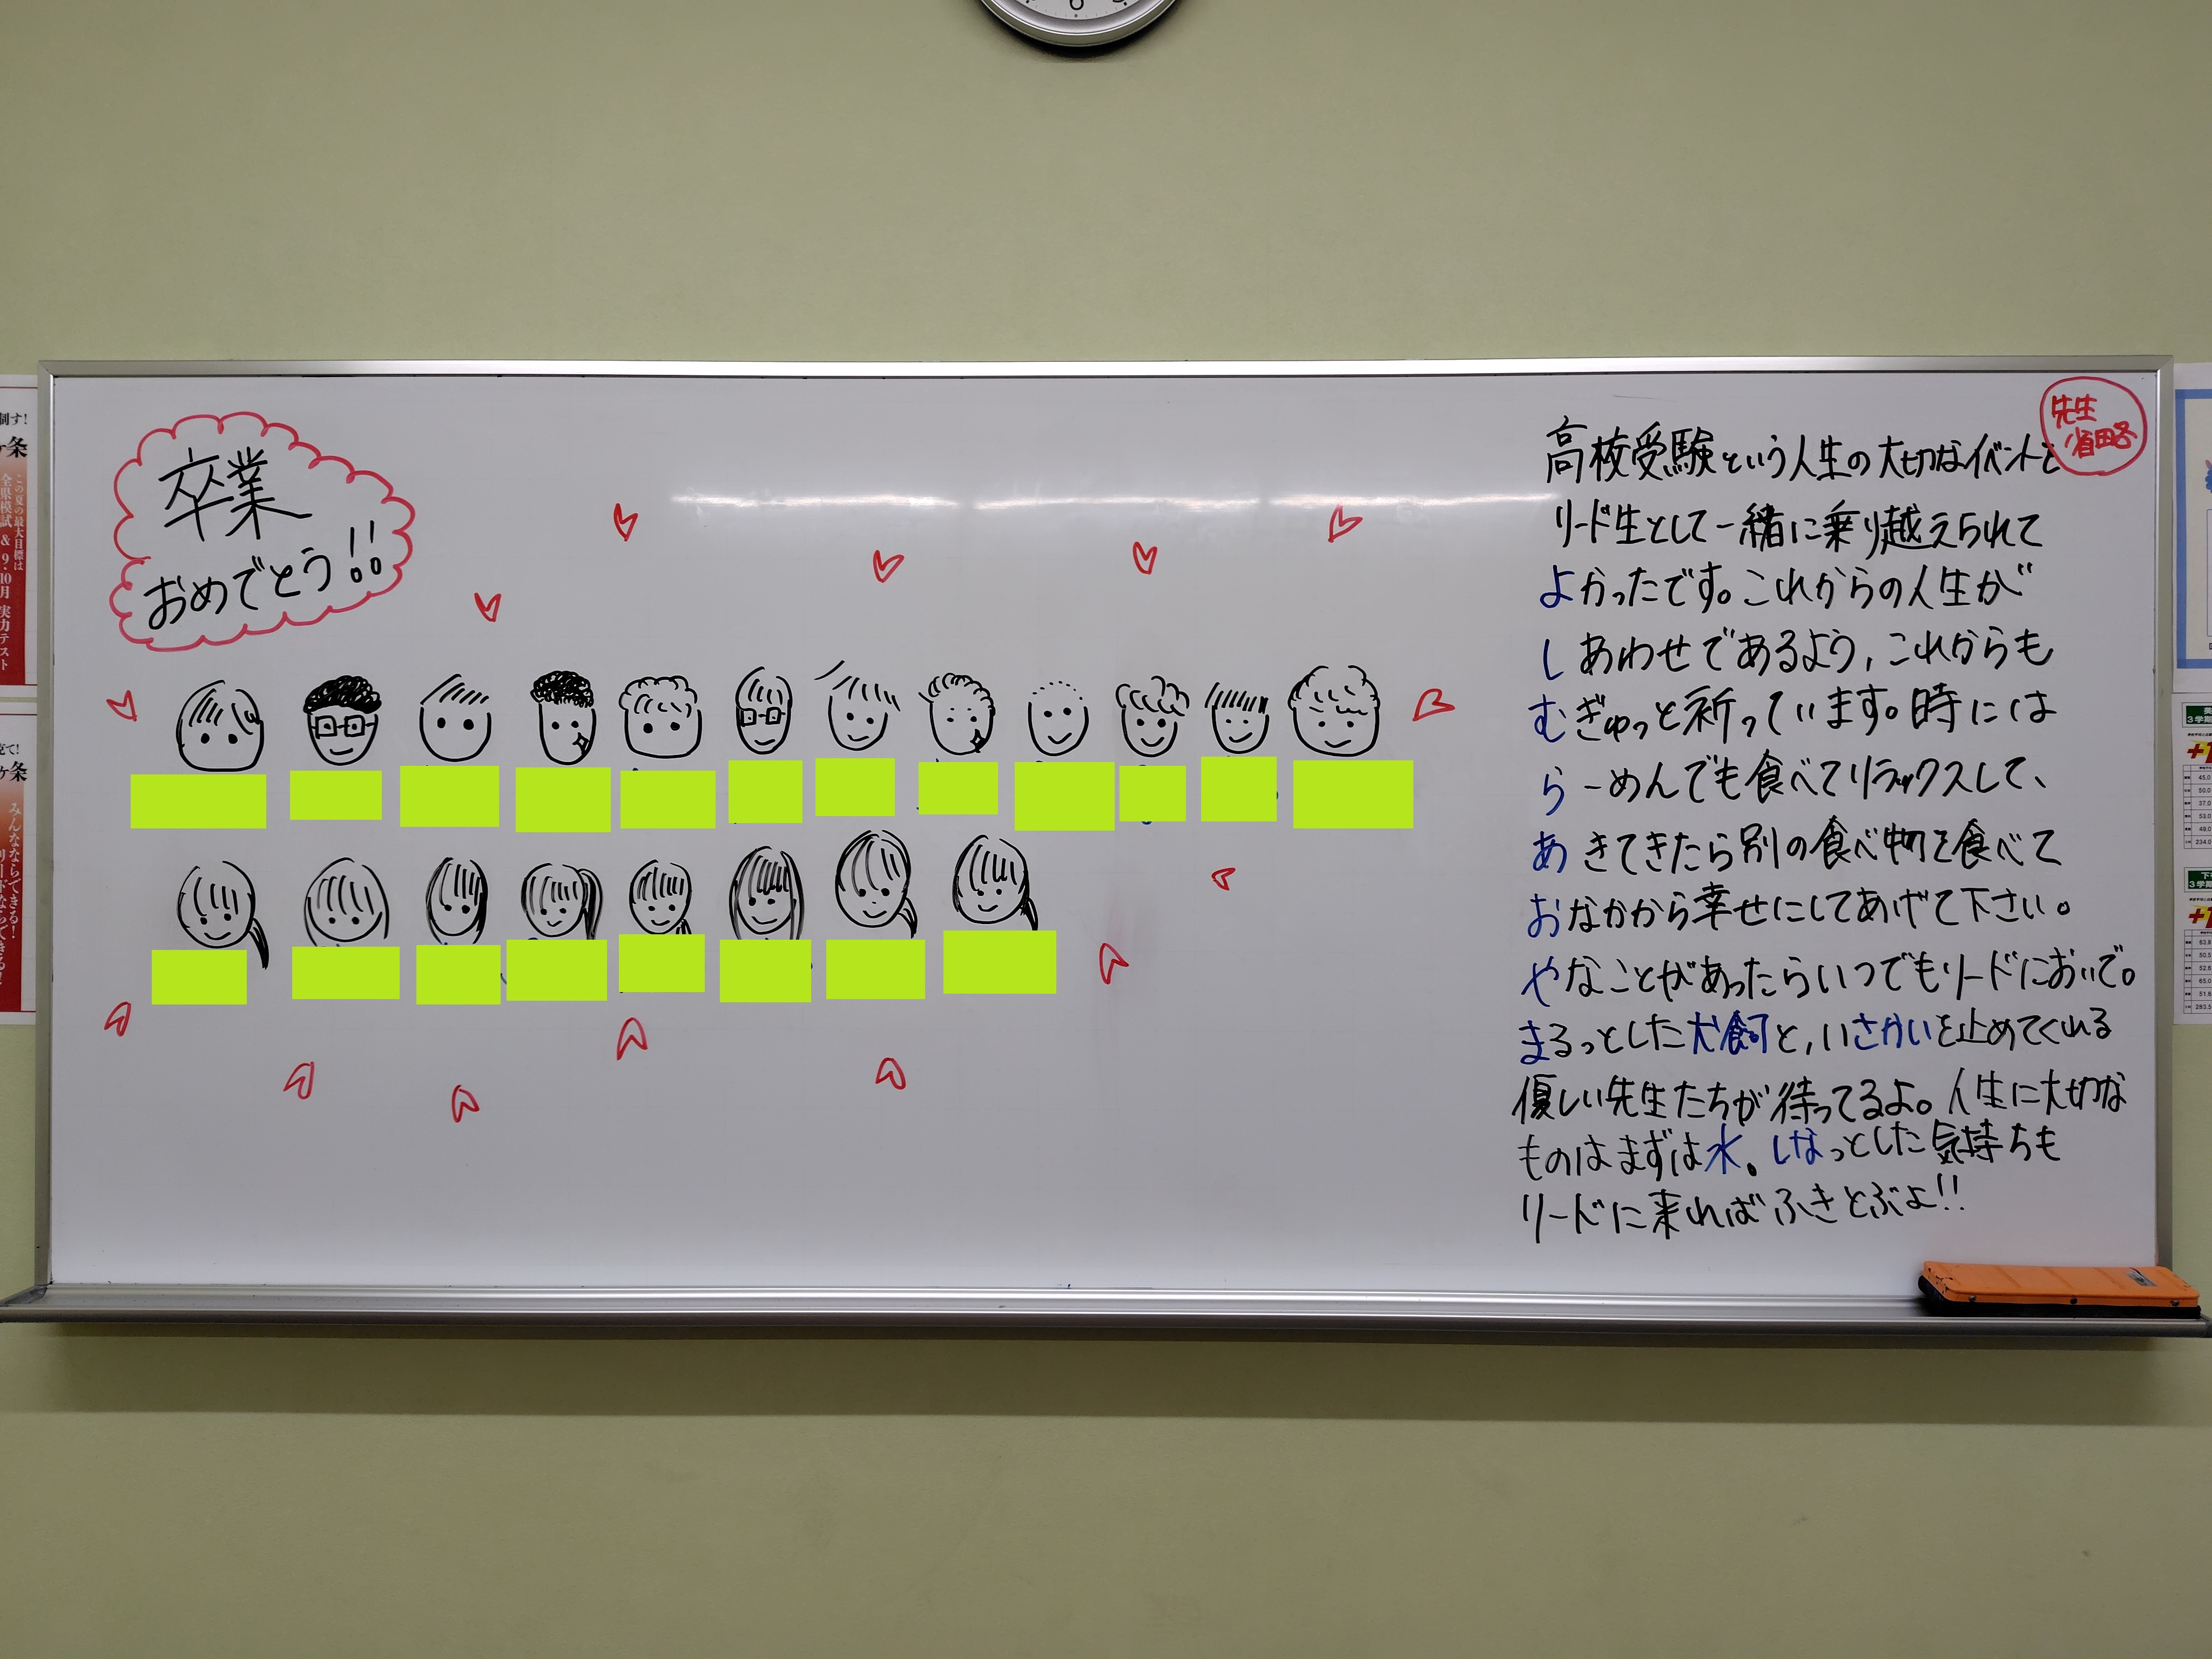 6
卒業
おめでとう!!
先生
省略
高校受験という人生の大切なイベントを
リード生として一緒に乗り越えられて
よかったです。これからの人生が
しあわせであるよう,これからも
むぎゅっと祈っています。時には
らーめんでも食べてリラックスして、
あきてきたら別の食べ物を食べて
おなかから幸せにしてあげて下さい。
やなことがあったらいつでもリードにおいで。
まるっとした犬飼と,いさかいを止めてくれる
優しい先生たちが待ってるよ。人生に大切な
ものはまずは水。しなっとした気持ちも
リードに来ればふきとぶよ!!
制す!
ケ条
この夏の最大目標は
全県模試 & 9・10月 実力テスト
ケ条
みんなならできる!
リードならできる!
3学期
45.0
50.0
37.0
53.0
49.0
234.0
3学期
63.8
50.5
52.6
65.0
51.6
283.5